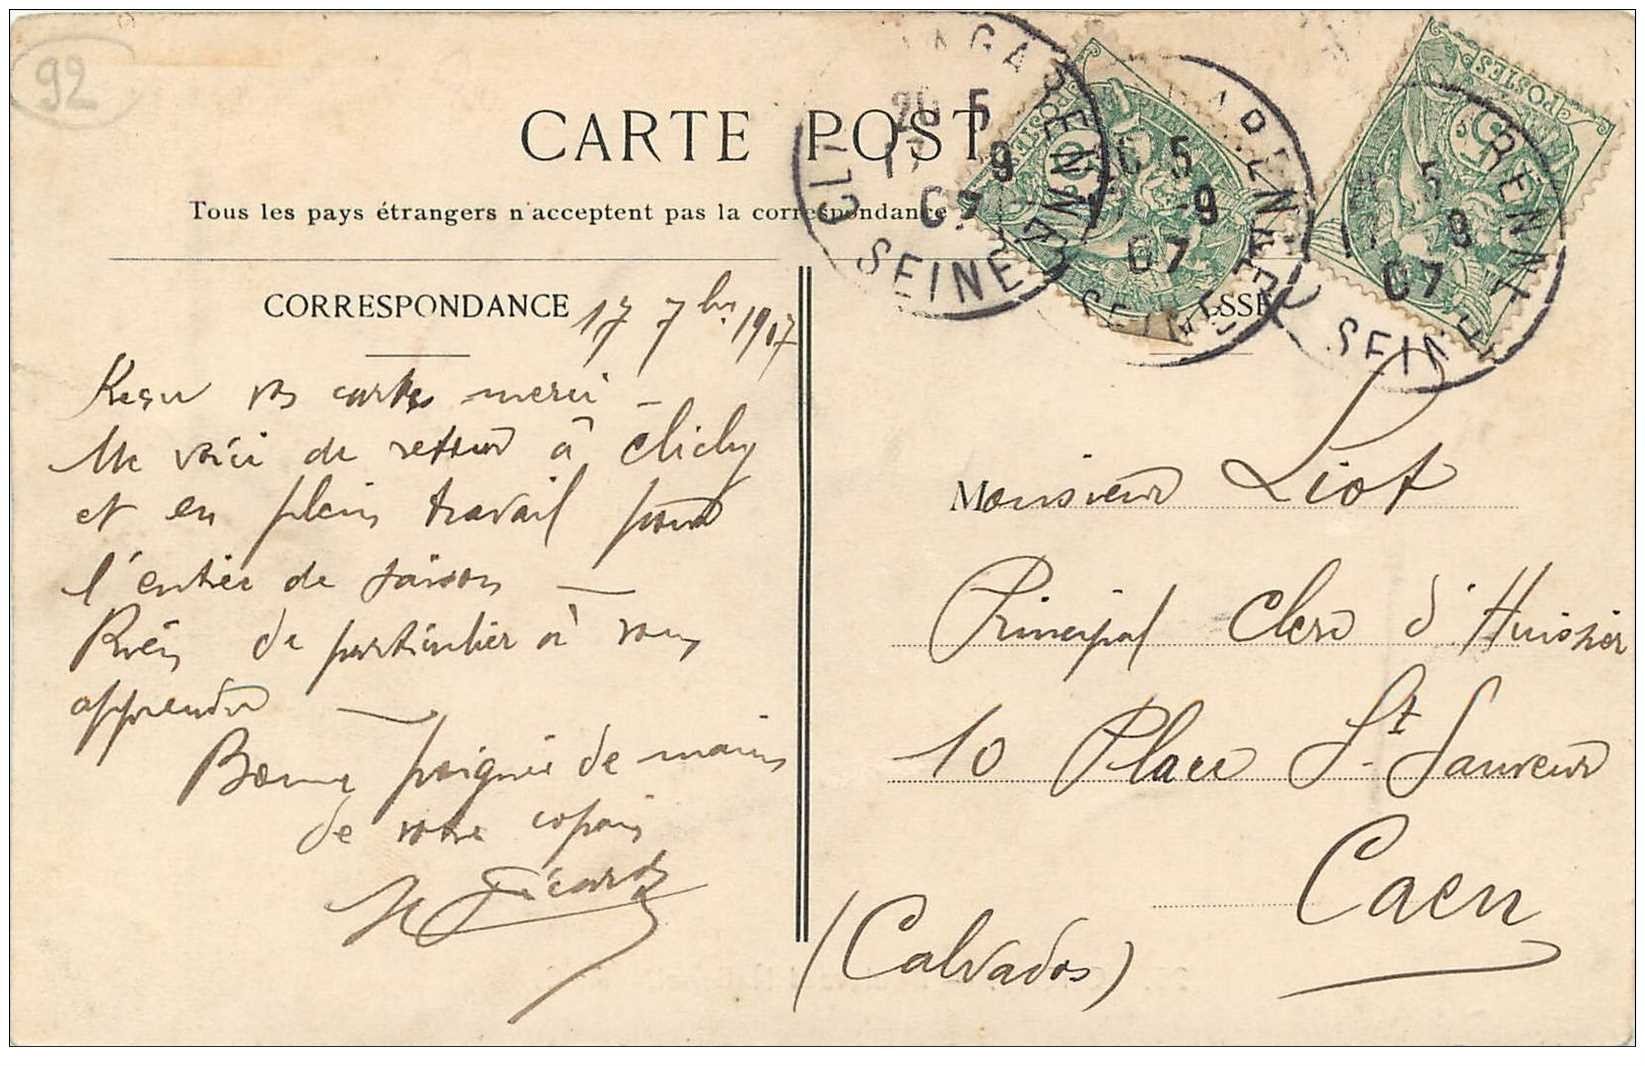 92
CARTE POST
Tous les pays étrangers n'acceptent pas la correspondance
CORRESPONDANCE
17 7bre 1907
Reçu vos cartes merci -
Me voici de retour à Clichy
et en plein travail pour
l'entrée de saison —
Rien de particulier à vous
apprendre —
Bonne poignée de mains
de votre copain
SSE
Monsieur Liot
Principal Clerc d'Huissier
10 Place St. Sauveur
Caen
(Calvados)
CLI GARENNE
5
9
07
SEINE
GARENNE
5
-9
07
SEINE
POSTES
5
RENN
5
9
07
SEINE